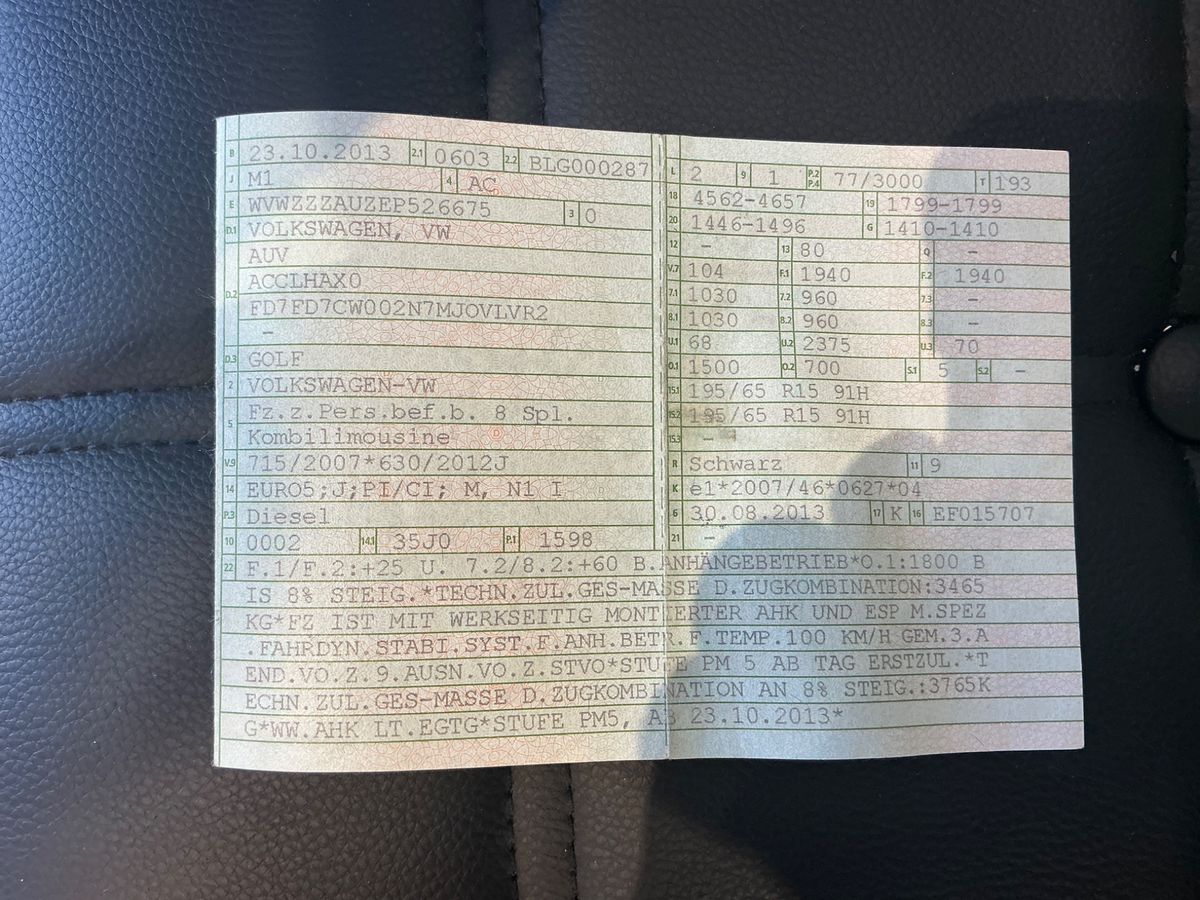 B 23.10.2013 2.1 0603 2.2 BLG000287
J M1 4 AC
E WVWZZZAUZEP526675 3 0
D.1 VOLKSWAGEN, VW
AUV
D.2 ACCLHAX0
FD7FD7CW002N7MJOVLVR2
–
D.3 GOLF
2 VOLKSWAGEN-VW
5 Fz.z.Pers.bef.b. 8 Spl.
Kombilimousine
V.9 715/2007*630/2012J
14 EURO5;J;PI/CI; M, N1 I
P.3 Diesel
10 0002 14.1 35J0 P.1 1598
L 2 9 1 P.2 P.4 77/3000 T 193
18 4562-4657 19 1799-1799
20 1446-1496 G 1410-1410
12 – 13 80 Q –
V.7 104 F.1 1940 F.2 1940
7.1 1030 7.2 960 7.3 –
8.1 1030 8.2 960 8.3 –
U.1 68 U.2 2375 U.3 70
O.1 1500 O.2 700 S.1 5 S.2 –
15.1 195/65 R15 91H
15.2 195/65 R15 91H
15.3 –
R Schwarz 11 9
K e1*2007/46*0627*04
6 30.08.2013 17 K 16 EF015707
21 –
22 F.1/F.2:+25 U. 7.2/8.2:+60 B.ANHÄNGEBETRIEB*O.1:1800 B
IS 8% STEIG.*TECHN.ZUL.GES-MASSE D.ZUGKOMBINATION:3465
KG*FZ IST MIT WERKSEITIG MONTIERTER AHK UND ESP M.SPEZ
.FAHRDYN.STABI.SYST.F.ANH.BETR.F.TEMP.100 KM/H GEM.3.A
END.VO.Z.9.AUSN.VO.Z.STVO*STUFE PM 5 AB TAG ERSTZUL.*T
ECHN.ZUL.GES-MASSE D.ZUGKOMBINATION AN 8% STEIG.:3765K
G*WW.AHK LT.EGTG*STUFE PM5, AB 23.10.2013*